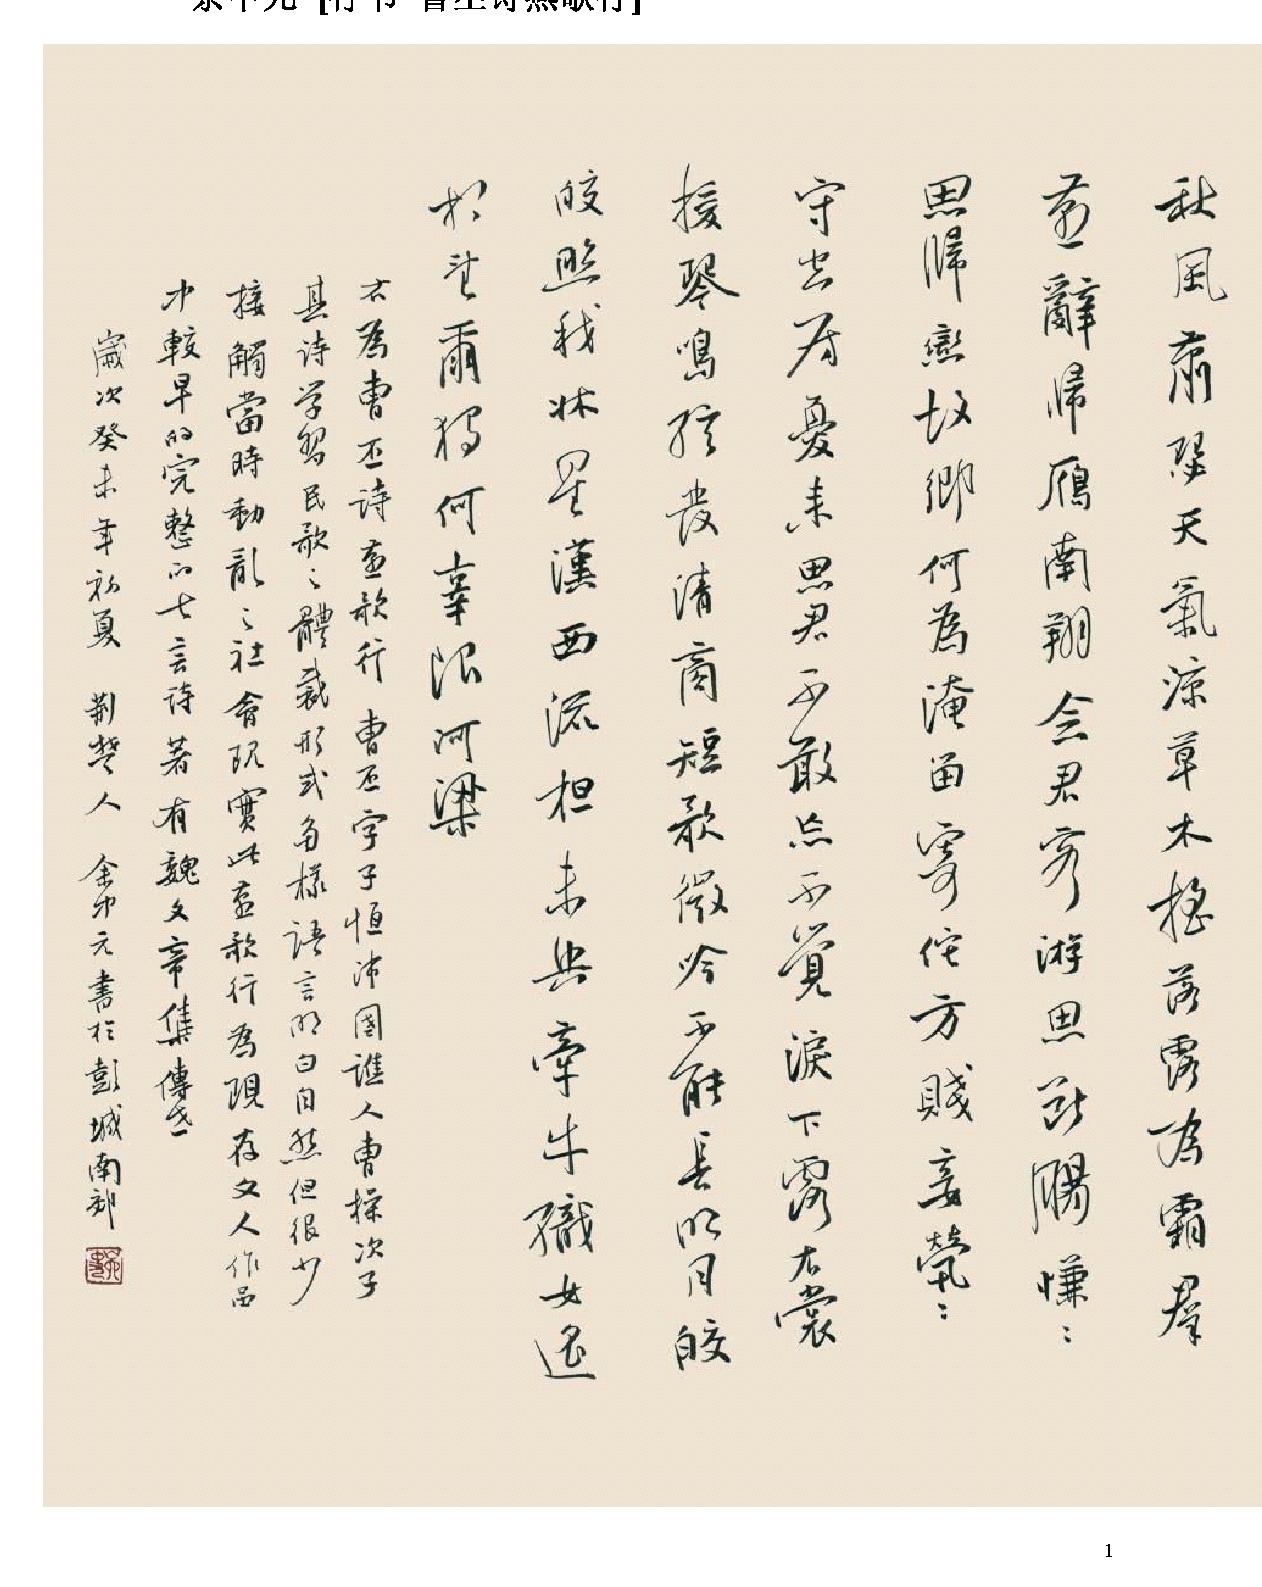 余中元 [行书 曹丕诗燕歌行]
秋風蕭瑟天氣涼草木搖落露為霜羣
燕辭歸雁南翔念君客游思斷腸慊〻
思歸戀故鄉何為淹留寄佗方賤妾煢〻
守空房憂來思君不敢忘不覺淚下霑衣裳
援琴鳴弦發清商短歌微吟不能長明月皎
皎照我牀星漢西流夜未央牽牛織女遥
相望爾獨何辜限河梁
右為曹丕詩燕歌行 曹丕字子恒沛國譙人曹操次子
其诗学習民歌〻體裁形式多樣語言明白自然但很少
接觸當時動亂〻社會現實此燕歌行為現存文人作品
中較早的完整的七言詩著有魏文帝集傳世
歲次癸未年初夏 荆楚人 余中元書於彭城南郊
1